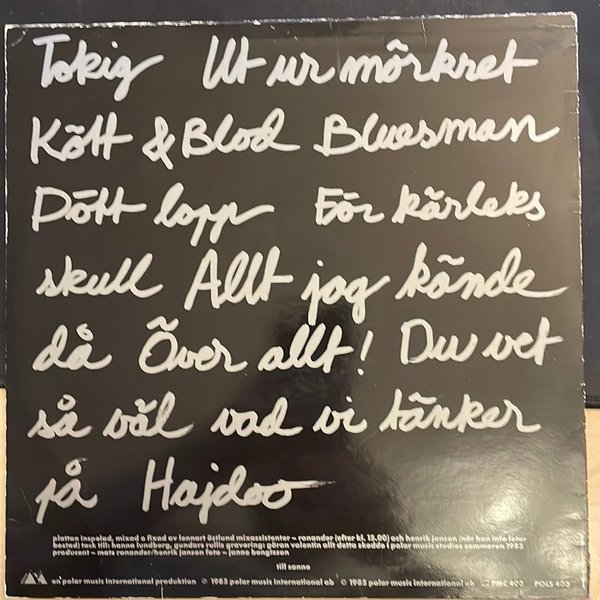 Tokig Ut ur mörkret
Kött & Blod Bluesman
Dött lopp För kärleks
skull Allt jag kände
då Över allt! Du vet
så väl vad vi tänker
på Hajdoo
plattan inspelad, mixad o fixad av lennart östlund mixassistenter – ronander (efter kl. 15.00) och henrik janson (när han inte letar
bostad) tack till: hanne lundberg, gundars rullis gravering: göran valentin allt detta skedde i polar music studios sommaren 1983
producent – mats ronander/henrik janson foto – janne bengtsson
till sanne
en polar music international produktion © 1983 polar music international ab ℗ 1983 polar music international ab PMC 403 POLS 403